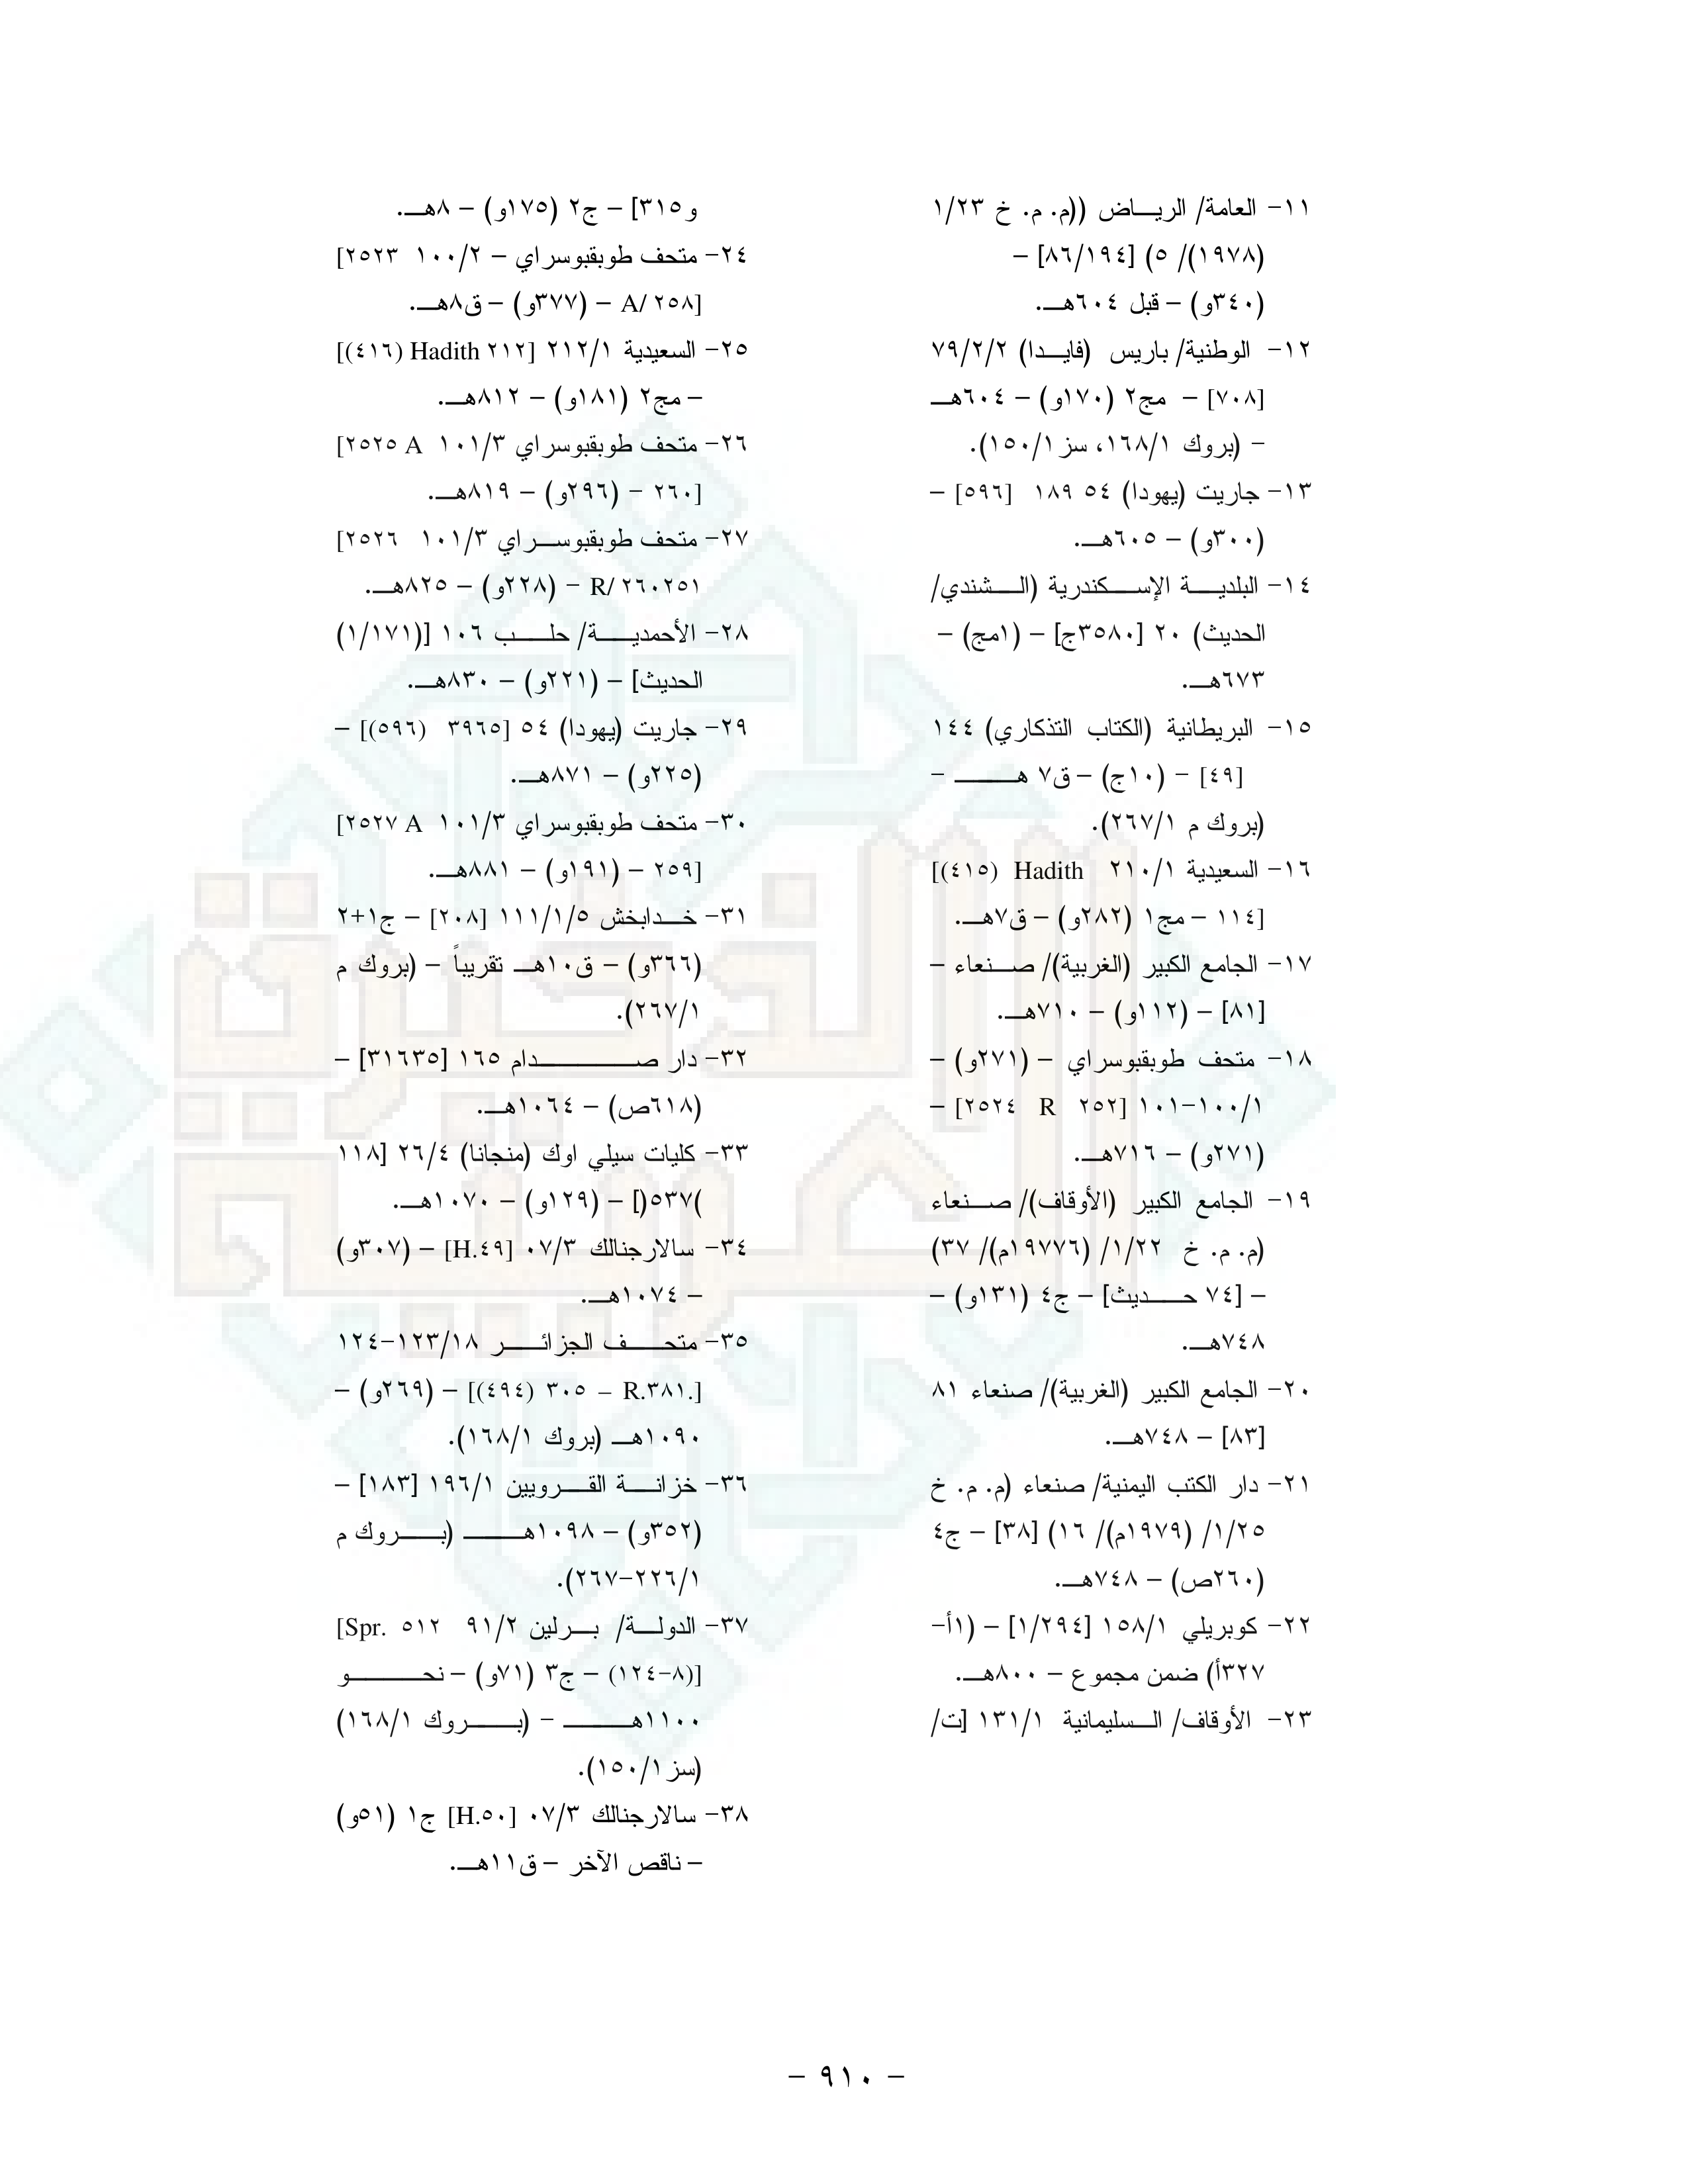 ١١- العامة/ الرياض ((م. م. خ ١/٢٣
(١٩٧٨)/ ٥) [٨٦/١٩٤] –
(٣٤٠و) – قبل ٦٠٤هـ.
١٢- الوطنية/ باريس (فايدا) ٧٩/٢/٢
[٧٠٨] – مج٢ (١٧٠و) – ٦٠٤هـ
- (بروك ١٦٨/١، سز ١٥٠/١).
١٣- جاريت (يهودا) ٥٤ ١٨٩ [٥٩٦] –
(٣٠٠و) – ٦٠٥هـ.
١٤- البلدية الإسكندرية (الشندي/
الحديث) ٢٠ [٣٥٨٠ج] – (١مج) –
٦٧٣هـ.
١٥- البريطانية (الكتاب التذكاري) ١٤٤
[٤٩] - (١٠ج) – ق٧ هـ -
(بروك م ٢٦٧/١).
١٦- السعيدية ٢١٠/١ Hadith (٤١٥)]
[١١٤ – مج١ (٢٨٢و) – ق٧هـ.
١٧- الجامع الكبير (الغربية)/ صنعاء –
[٨١] – (١١٢و) – ٧١٠هـ.
١٨- متحف طوبقبوسراي – (٢٧١و) –
١٠١-١٠٠/١ [٢٥٢ R ٢٥٢٤] –
(٢٧١و) – ٧١٦هـ.
١٩- الجامع الكبير (الأوقاف)/ صنعاء
(م. م. خ ١/٢٢/ (١٩٧٧٦م)/ ٣٧)
– [٧٤ حديث] – ج٤ (١٣١و) –
٧٤٨هـ.
٢٠- الجامع الكبير (الغربية)/ صنعاء ٨١
[٨٣] – ٧٤٨هـ.
٢١- دار الكتب اليمنية/ صنعاء (م. م. خ
١/٢٥/ (١٩٧٩م)/ ١٦) [٣٨] – ج٤
(٢٦٠ص) – ٧٤٨هـ.
٢٢- كوبريلي ١٥٨/١ [١/٢٩٤] – (١أ-
٣٢٧أ) ضمن مجموع – ٨٠٠هـ.
٢٣- الأوقاف/ السليمانية ١٣١/١ [ت/
و٣١٥] – ج٢ (١٧٥و) – ٨هـ.
٢٤- متحف طوبقبوسراي – ١٠٠/٢ ٢٥٢٣]
[A/ ٢٥٨ – (٣٧٧و) – ق٨هـ.
٢٥- السعيدية ٢١٢/١ [٢١٢ Hadith (٤١٦)]
– مج٢ (١٨١و) – ٨١٢هـ.
٢٦- متحف طوبقبوسراي ١٠١/٣ ٢٥٢٥ A]
[٢٦٠ - (٢٩٦و) – ٨١٩هـ.
٢٧- متحف طوبقبوسراي ١٠١/٣ ٢٥٢٦]
R/ ٢٦٠٢٥١ – (٢٢٨و) – ٨٢٥هـ.
٢٨- الأحمدية/ حلب ١٠٦ [(١/١٧١)
الحديث] – (٢٢١و) – ٨٣٠هـ.
٢٩- جاريت (يهودا) ٥٤ [٣٩٦٥ (٥٩٦)] –
(٢٢٥و) – ٨٧١هـ.
٣٠- متحف طوبقبوسراي ١٠١/٣ ٢٥٢٧ A]
[٢٥٩ – (١٩١و) – ٨٨١هـ.
٣١- خدابخش ١١١/١/٥ [٢٠٨] – ج١+٢
(٣٦٦و) – ق١٠هـ تقريباً – (بروك م
٢٦٧/١).
٣٢- دار صدام ١٦٥ [٣١٦٣٥] –
(٦١٨ص) – ١٠٦٤هـ.
٣٣- كليات سيلي اوك (منجانا) ٢٦/٤ [١١٨
)٥٣٧(] – (١٢٩و) – ١٠٧٠هـ.
٣٤- سالارجنالك ٠٧/٣ [H.٤٩] – (٣٠٧و)
– ١٠٧٤هـ.
٣٥- متحف الجزائر ١٢٤-١٢٣/١٨
[.R.٣٨١ – ٣٠٥ (٤٩٤)] – (٢٦٩و) –
١٠٩٠هـ (بروك ١٦٨/١).
٣٦- خزانة القرويين ١٩٦/١ [١٨٣] –
(٣٥٢و) – ١٠٩٨هـ (بروك م
٢٦٧-٢٢٦/١).
٣٧- الدولة/ برلين ٩١/٢ Spr. ٥١٢]
[(٨-١٢٤) – ج٣ (٧١و) – نحو
١١٠٠هـ - (بروك ١٦٨/١)
(سز١٥٠/١).
٣٨- سالارجنالك ٠٧/٣ [H.٥٠] ج١ (٥١و)
– ناقص الآخر – ق١١هـ.
– ٩١٠ –